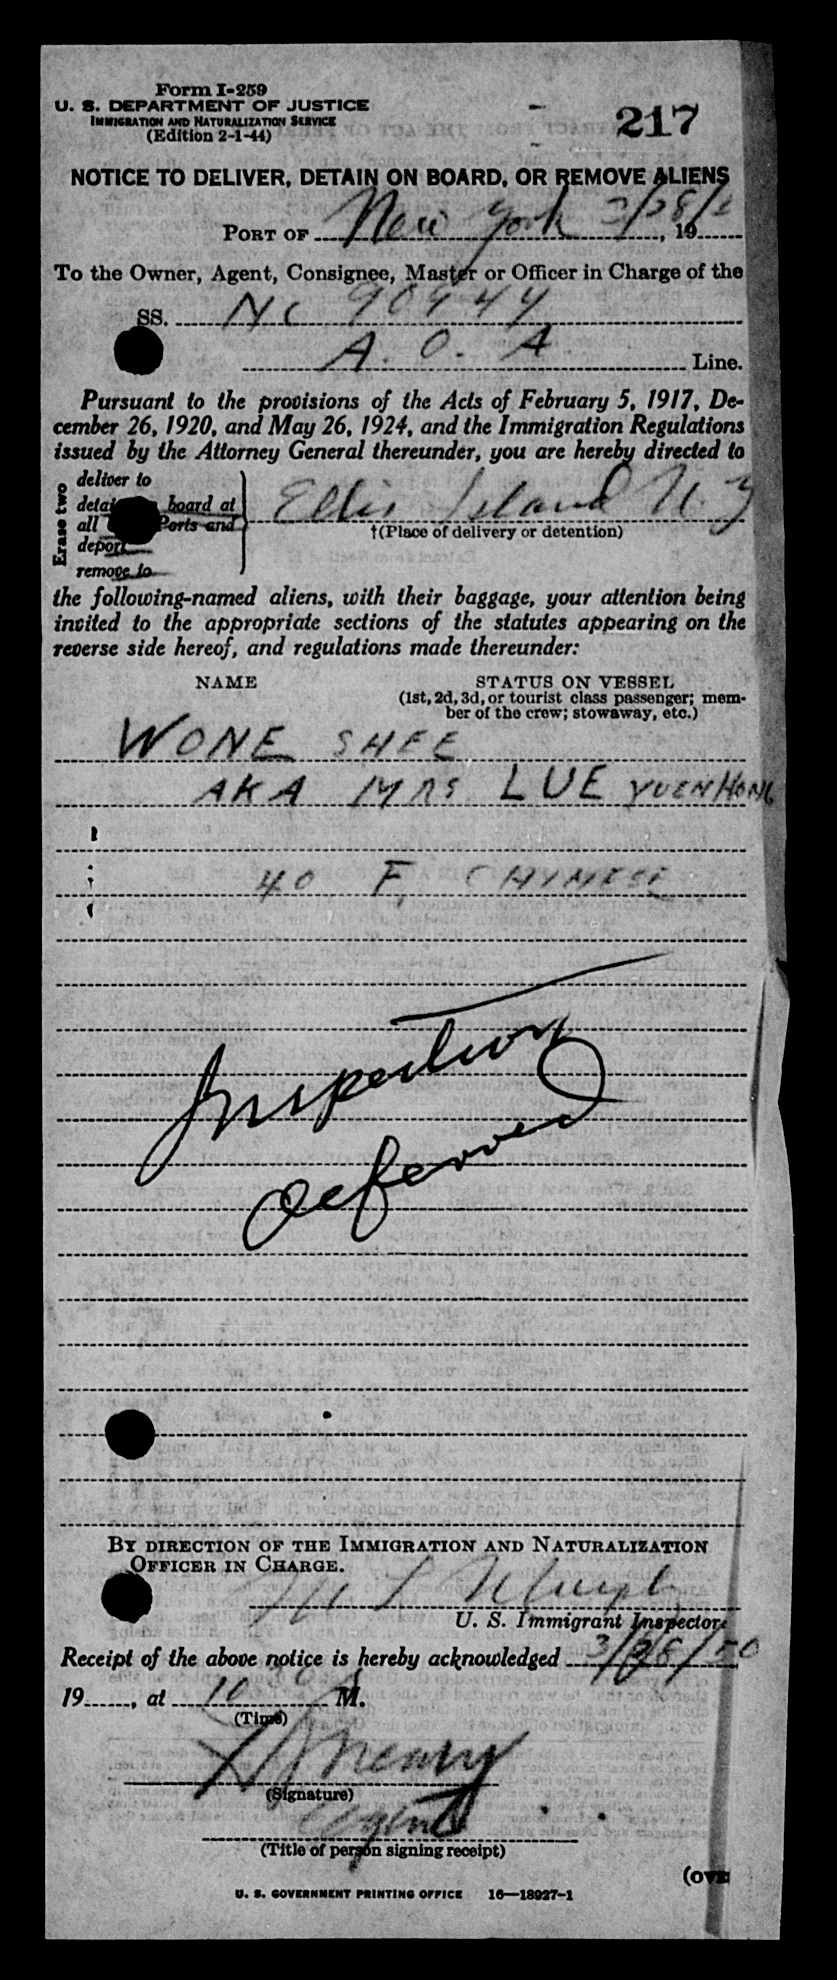 Form I-259
U. S. DEPARTMENT OF JUSTICE
IMMIGRATION AND NATURALIZATION SERVICE
(Edition 2-1-44)
217
NOTICE TO DELIVER, DETAIN ON BOARD, OR REMOVE ALIENS
PORT OF New York 3/28/, 19
To the Owner, Agent, Consignee, Master or Officer in Charge of the
SS. NC 90944
A. O. A Line.
Pursuant to the provisions of the Acts of February 5, 1917, De-
cember 26, 1920, and May 26, 1924, and the Immigration Regulations
issued by the Attorney General thereunder, you are hereby directed to
Erase two
deliver to
board at
all Ports and
deport
remove to
Ellis Island N.Y
†(Place of delivery or detention)
the following-named aliens, with their baggage, your attention being
invited to the appropriate sections of the statutes appearing on the
reverse side hereof, and regulations made thereunder:
NAME STATUS ON VESSEL
(1st, 2d, 3d, or tourist class passenger; mem-
ber of the crew; stowaway, etc.)
WONE SHEE
AKA MRS LUE YUEN HONG
40 F. CHINESE
Inspection
deferred
BY DIRECTION OF THE IMMIGRATION AND NATURALIZATION
OFFICER IN CHARGE.
U. S. Immigrant Inspector.
Receipt of the above notice is hereby acknowledged 3/28/50
19, at 10 30 A M.
(Time)
(Signature)
Agent
(Title of person signing receipt)
(OVE
U. S. GOVERNMENT PRINTING OFFICE 16—18927-1